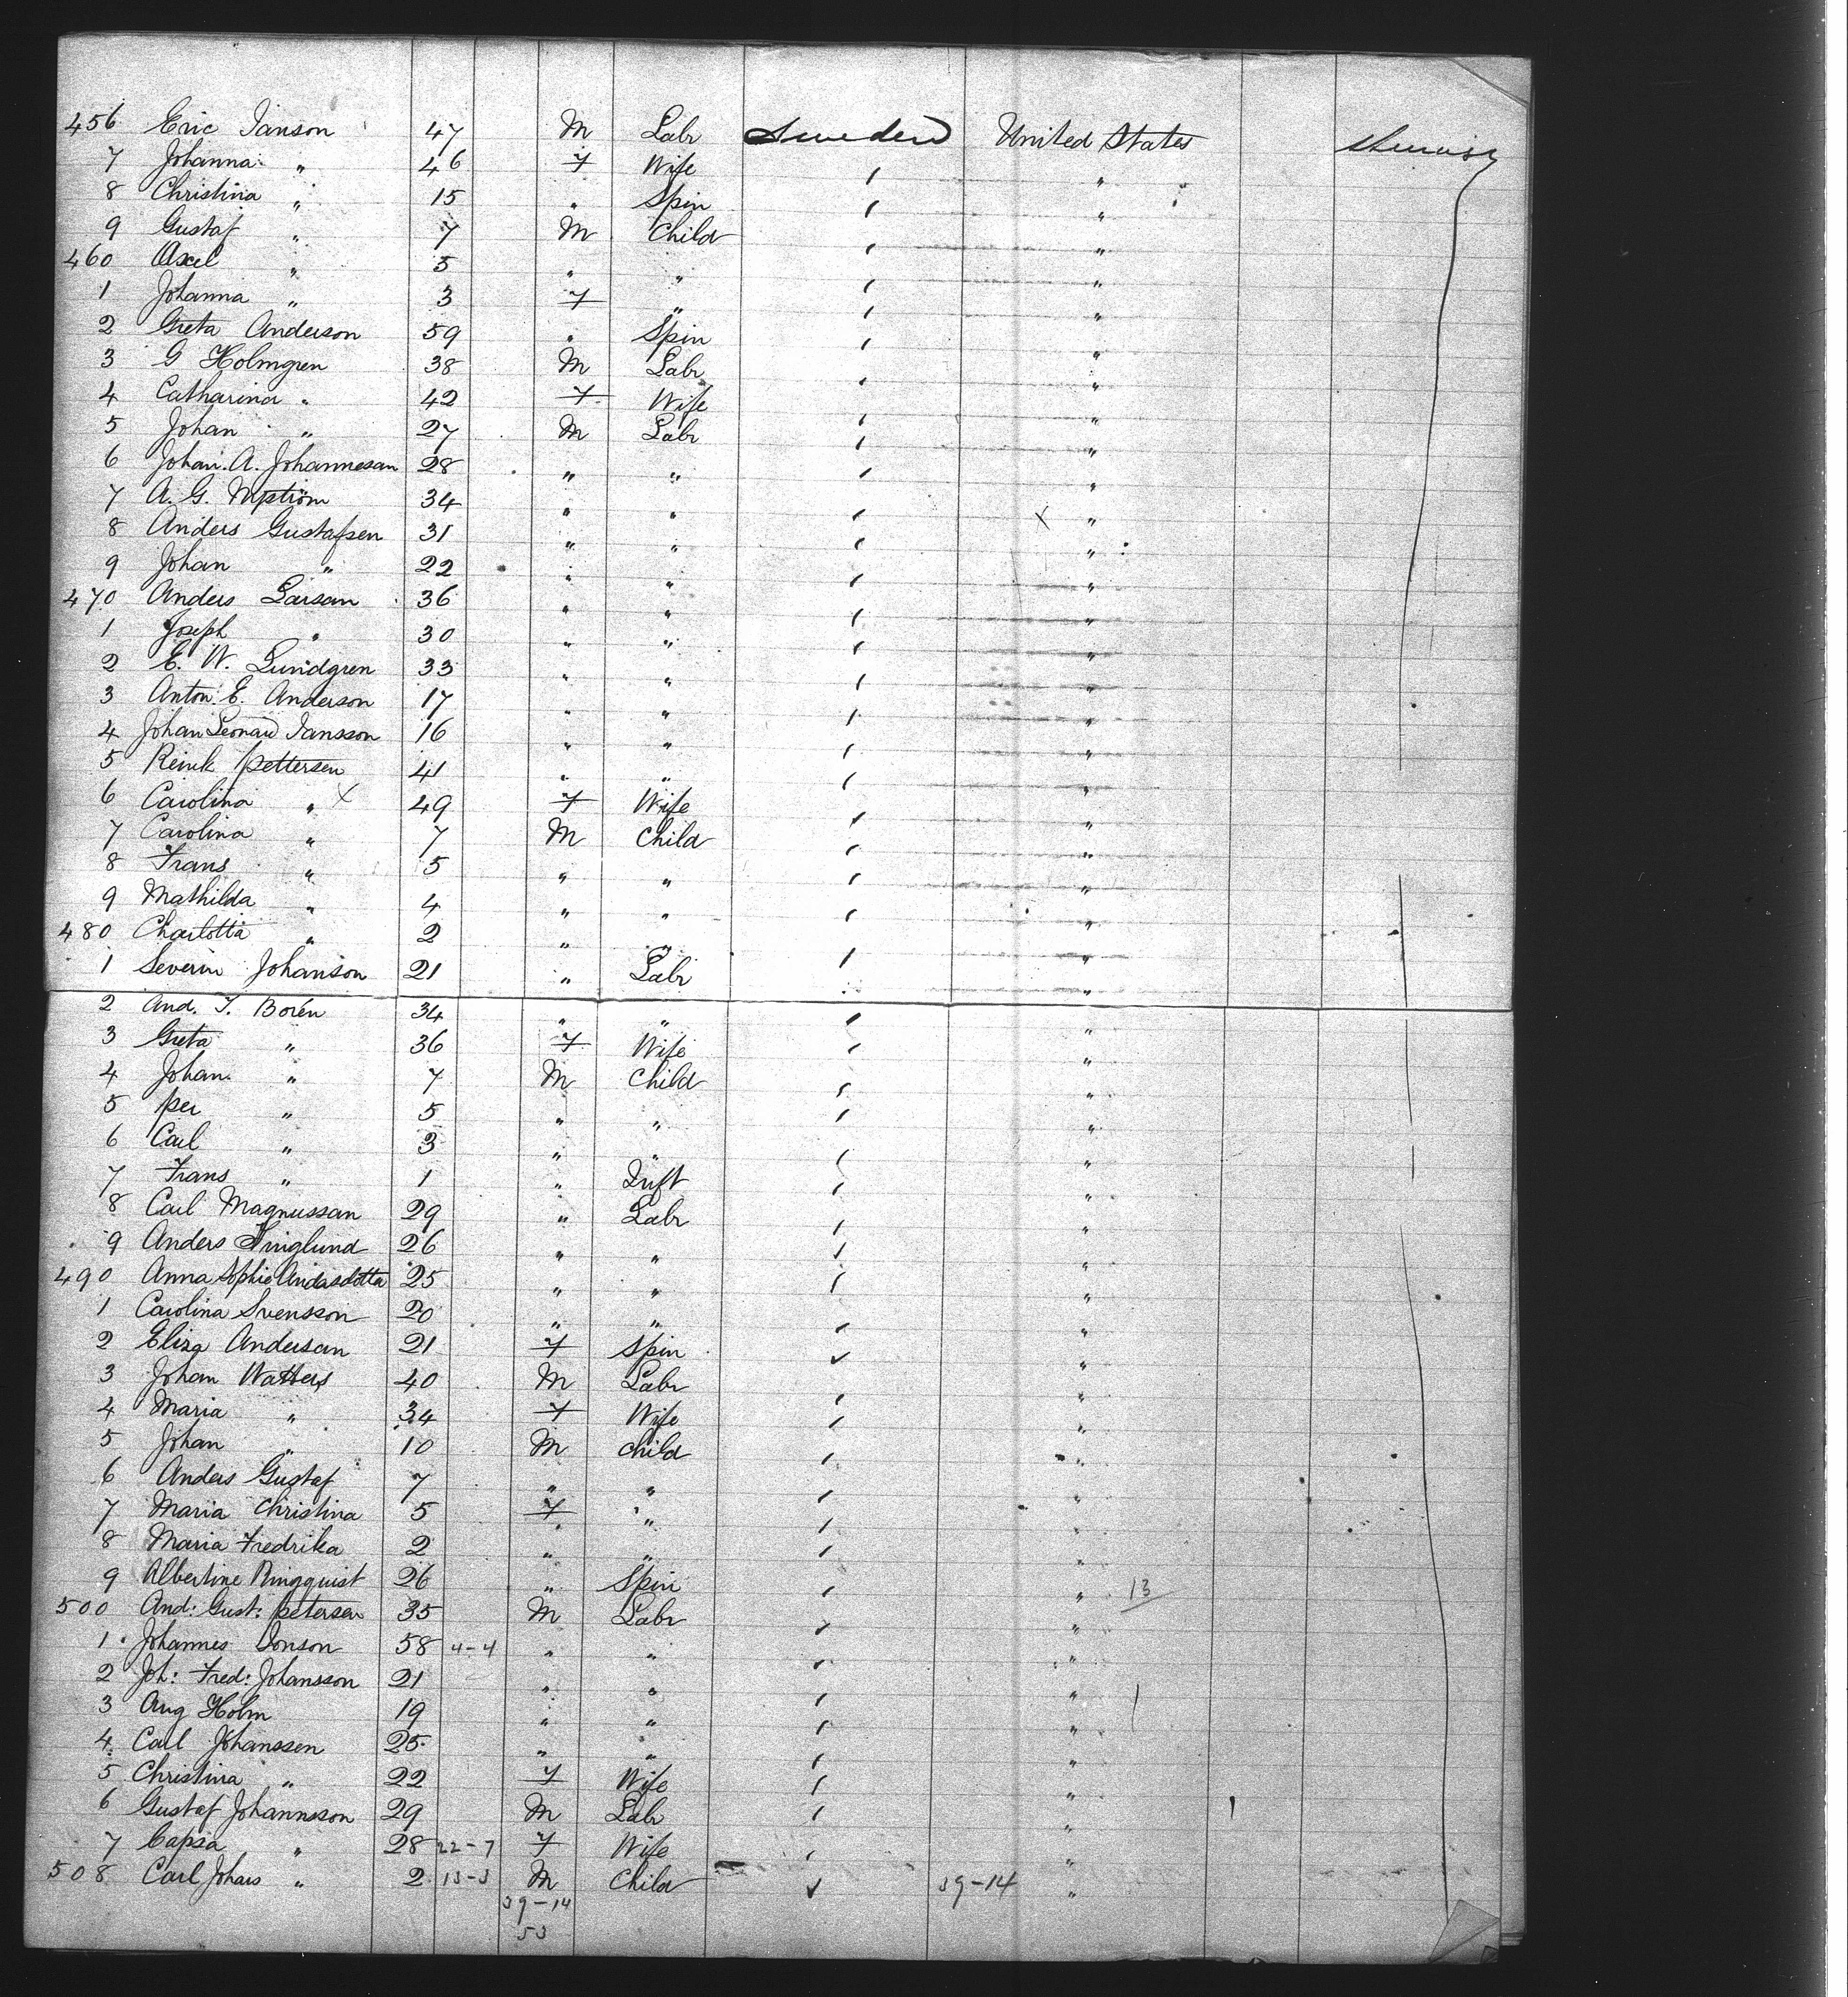 456 Eric Janson 47 M Labr Sweden United States
7 Johanna " 46 F Wife " "
8 Christina " 15 " Spin " "
9 Gustaf " 7 M Child " "
460 Axel " 5 " " " "
1 Johanna " 3 F " " "
2 Greta Anderson 59 " Spin " "
3 G Holmgren 38 M Labr " "
4 Catharina " 42 F Wife " "
5 Johan " 27 M Labr " "
6 Johan. A. Johannesan 28 " " " "
7 A. G. 34 " " " X "
8 Anders Gustafsen 31 " " " "
9 Johan " 22 " " " "
470 Anders Larsan 36 " " " "
1 Joseph " 30 " " " "
2 E. W. Lundgren 33 " " " "
3 Anton E. Anderson 17 " " " "
4 Johan Leonard Jansson 16 " " " "
5 Pettersen 41 " " " "
6 Carolina " X 49 F Wife " "
7 Carolina " 7 M Child " "
8 Frans " 5 " " " "
9 Mathilda " 4 " " " "
480 Charlotta " 2 " " " "
1 Severin Johanson 21 " Labr " "
2 And. J. Borén 34 " " " "
3 Greta " 36 F Wife " "
4 Johan. " 7 M Child " "
5 Per " 5 " " " "
6 Carl " 3 " " " "
7 Frans " 1 " Inft " "
8 Carl Magnussan 29 " Labr " "
9 Anders 26 " " " "
490 Anna Sophie Andersdotta 25 " " " "
1 Carolina Svensson 20 " " " "
2 Eliza Andersan 21 F Spin " "
3 Johan Watters 40 M Labr " "
4 Maria " 34 F Wife " "
5 Johan " 10 M Child " "
6 Anders Gustaf 7 " " " "
7 Maria Christina 5 F " " "
8 Maria Fredrika 2 " " " "
9 Albertine Ringquist 26 " Spin " " 13
500 And: Gust: Petersen 35 M Labr " "
1 Johannes Jonson 58 4-4 " " " "
2 Joh: Fred: Johansson 21 " " " "
3 Aug Holm 19 " " " "
4 Carl Johanssen 25 " " " "
5 Christina " 22 F Wife " "
6 Gustaf Johannsson 29 M Labr " "
7 Capsa " 28 22-7 F Wife " "
508 Carl Johans " 2 13-3 M Child " 39-14 "
39-14
53